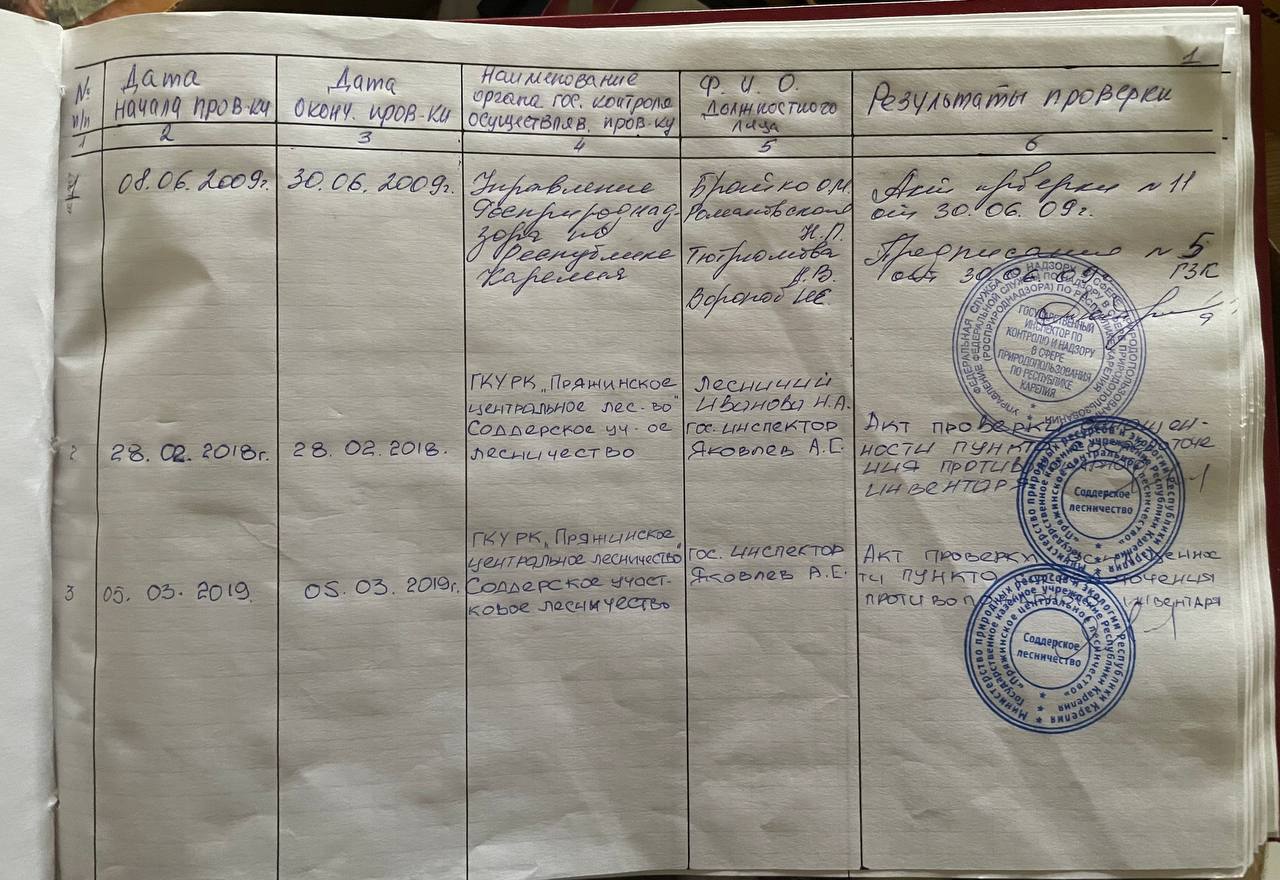 1
№ п/п
Дата
начала пров-ки
Дата
оконч. пров-ки
Наименование
органа гос. контроля
осуществляв. пров-ку
Ф. И. О.
должностного
лица
Результаты проверки
1 2 3 4 5 6
1
08.06.2009г.
30.06.2009г.
Управление
Росприроднад-
зора по
Республике
Карелия
Бройко О.М.
Романовская
Н.Г.
Тютрюмова
Н.В.
Акт проверки №11
от 30.06.09г.
Предписание №5
от 30.06.09г. ГЗК
ГОСУДАРСТВЕННЫЙ
ИНСПЕКТОР ПО
КОНТРОЛЮ И НАДЗОРУ
В СФЕРЕ
ПРИРОДОПОЛЬЗОВАНИЯ
ПО РЕСПУБЛИКЕ
КАРЕЛИЯ
2
28.02.2018г.
28.02.2018.
ГКУ РК „Пряжинское
центральное лес-во"
Соддерское уч-ое
лесничество
Лесничий
Иванова Н.А.
гос. инспектор
Яковлев А.С.
Акт проверки
ности
ния
инвентаря
Министерство природных ресурсов и экологии Республики Карелия
Государственное казенное учреждение Республики Карелия
«Пряжинское центральное лесничество»
Соддерское
лесничество
3
05.03.2019.
05.03.2019г.
ГКУ РК „Пряжинское
центральное лесничество"
Соддерское участ-
ковое лесничество
гос. инспектор
Яковлев А.С.
Акт проверки
ти пункта
инвентаря
Министерство природных ресурсов и экологии Республики Карелия
Государственное казенное учреждение Республики Карелия
«Пряжинское центральное лесничество»
Соддерское
лесничество